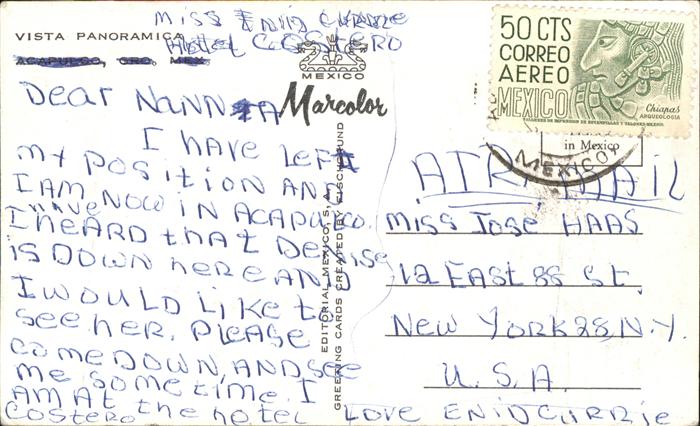 Miss Enid Currie
Hotel Costero
VISTA PANORAMICA
ACAPULCO, GRO. MEX
MEXICO
Marcolor
Dear Nanna
I have left
my position and
I am now in Acapulco.
I have heard that Denise
is down here and
I would like to
see her. Please
come down, and see
me sometime. I
am at the hotel
Costero Love Enid Currie
EDITORIAL MEXICO, S. A.
GREETING CARDS CREATED BY FISCHGRUND
50 CTS
CORREO
AEREO
MEXICO
Chiapas
ARQUEOLOGIA
in Mexico
MEXICO
AIR MAIL
Miss Jose HAAS
12 East 88 St.
New York 28, N.Y.
U.S.A.